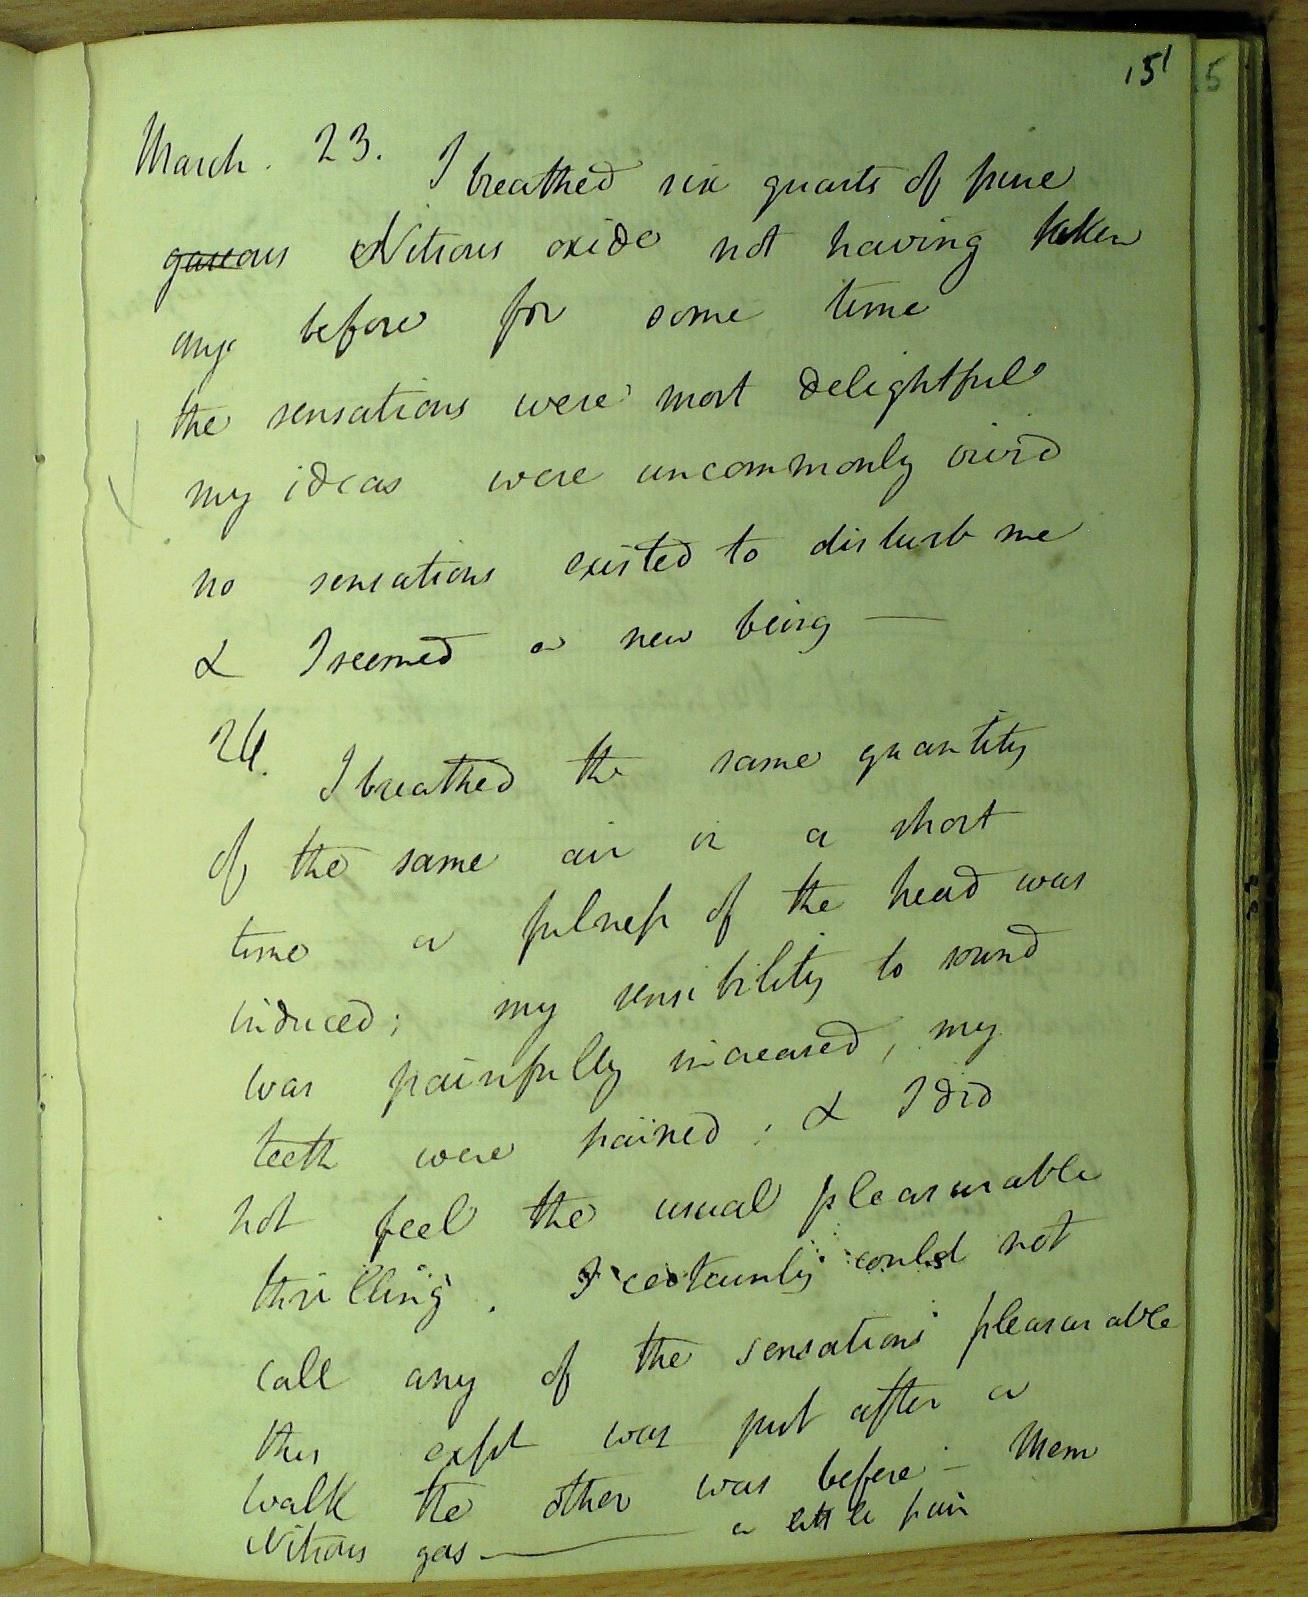 151
5
March. 23. I breathed six quarts of pure
gaseous Nitrous oxide not having taken
any before for some time
the sensations were most delightful
my ideas were uncommonly vivid
no sensations existed to disturb me
& I seemed a new being —
24. I breathed the same quantity
of the same air in a short
time a fulness of the head was
induced; my sensibility to sound
was painfully increased, my
teeth were pained; & I did
not feel the usual pleasurable
thrilling. I certainly could not
call any of the sensations pleasurable
this expt was just after a
walk the other was before – Mem
Nitrous gas — a little pain